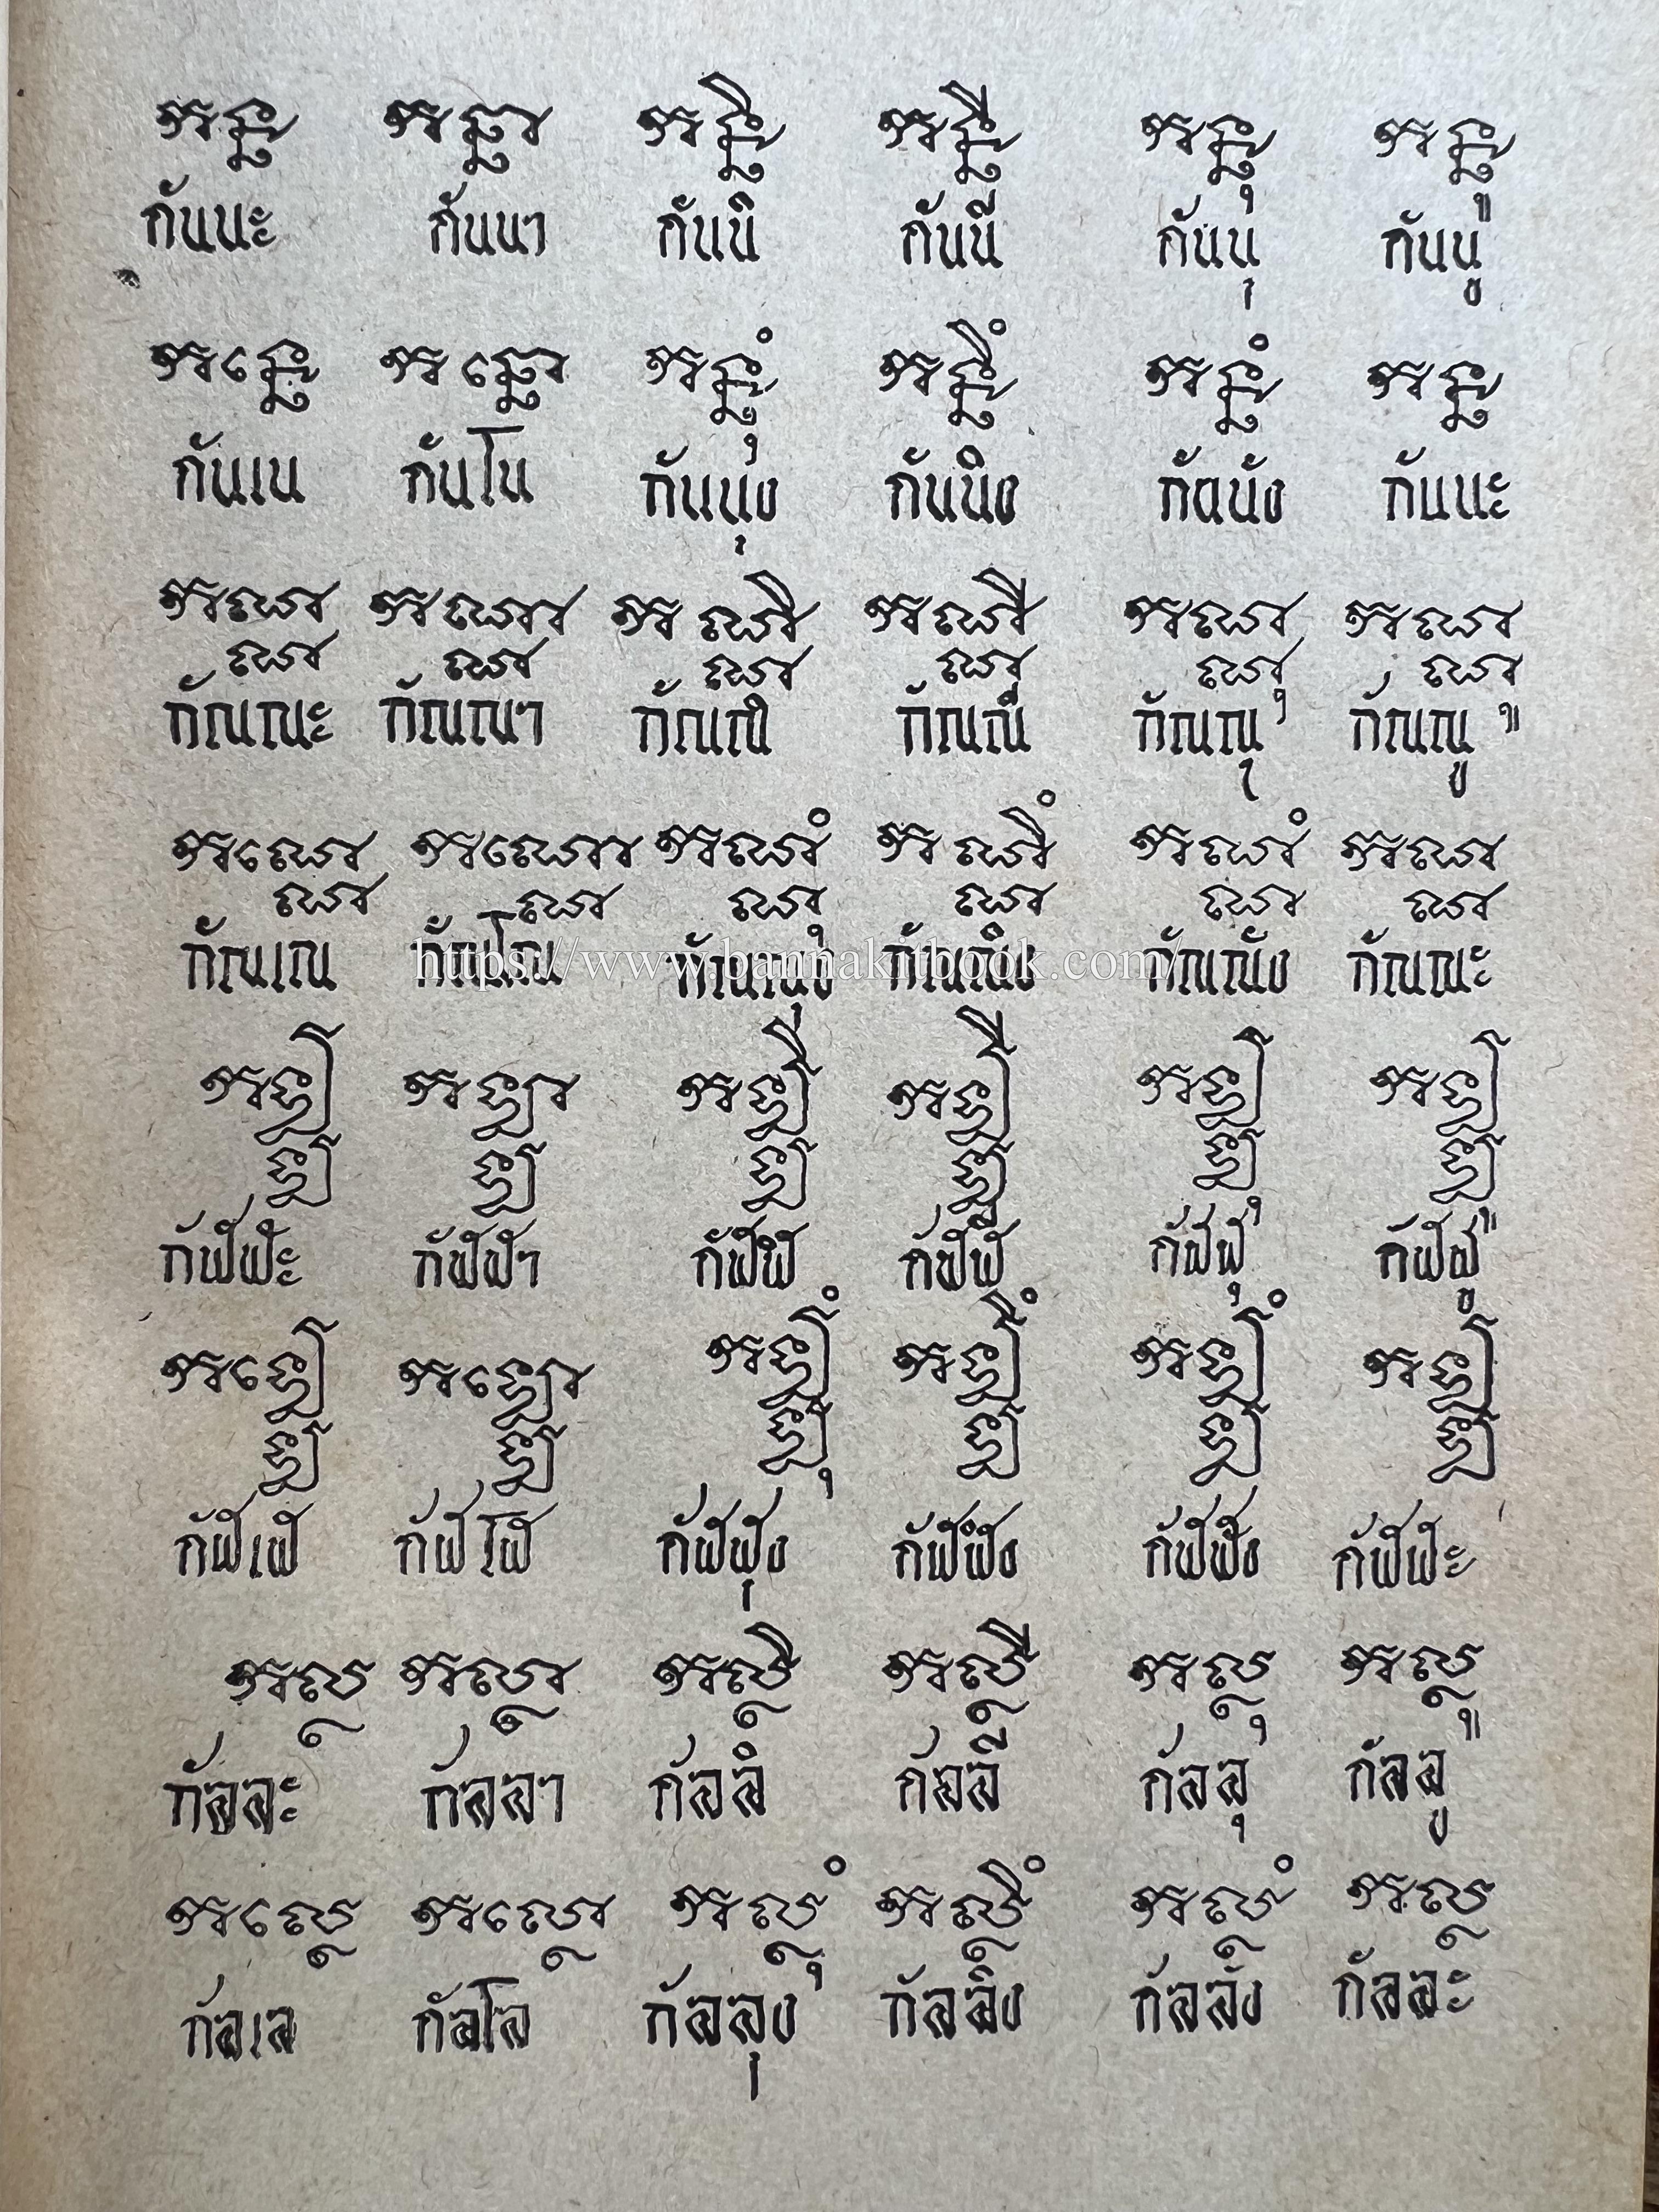 កន្ន កន្នា កន្និ កន្នី កន្នុ កន្នូ
กันนะ กันนา กันนิ กันนี กันนุ กันนู
កន្នេ កន្នោ កន្នុំ កន្និំ កន្នំ កន្ន
กันเน กันโน กันนุง กันนิง กันนัง กันนะ
កណ្ណ កណ្ណា កណ្ណិ កណ្ណី កណ្ណុ កណ្ណូ
กัณณะ กัณณา กัณณิ กัณณี กัณณุ กัณณู
កណ្ណេ កណ្ណោ កណ្ណុំ កណ្ណិំ កណ្ណំ កណ្ណ
กัณเณ กัณโณ กัณณุง กัณณิง กัณณัง กัณณะ
https://www.bannakitbook.com/
កឡ្ឡ កឡ្ឡា កឡ្ឡិ កឡ្ឡី កឡ្ឡុ កឡ្ឡូ
กัฬฬะ กัฬฬา กัฬฬิ กัฬฬี กัฬฬุ กัฬฬู
កឡ្ឡេ កឡ្ឡោ កឡ្ឡុំ កឡ្ឡិំ កឡ្ឡំ កឡ្ឡ
กัฬเฬ กัฬโฬ กัฬฬุง กัฬฬิง กัฬฬัง กัฬฬะ
កល្ល កល្លា កល្លិ កល្លី កល្លុ កល្លូ
กัลละ กัลลา กัลลิ กัลลี กัลลุ กัลลู
កល្លេ កល្លោ កល្លុំ កល្លិំ កល្លំ កល្ល
กัลเล กัลโล กัลลุง กัลลิง กัลลัง กัลละ